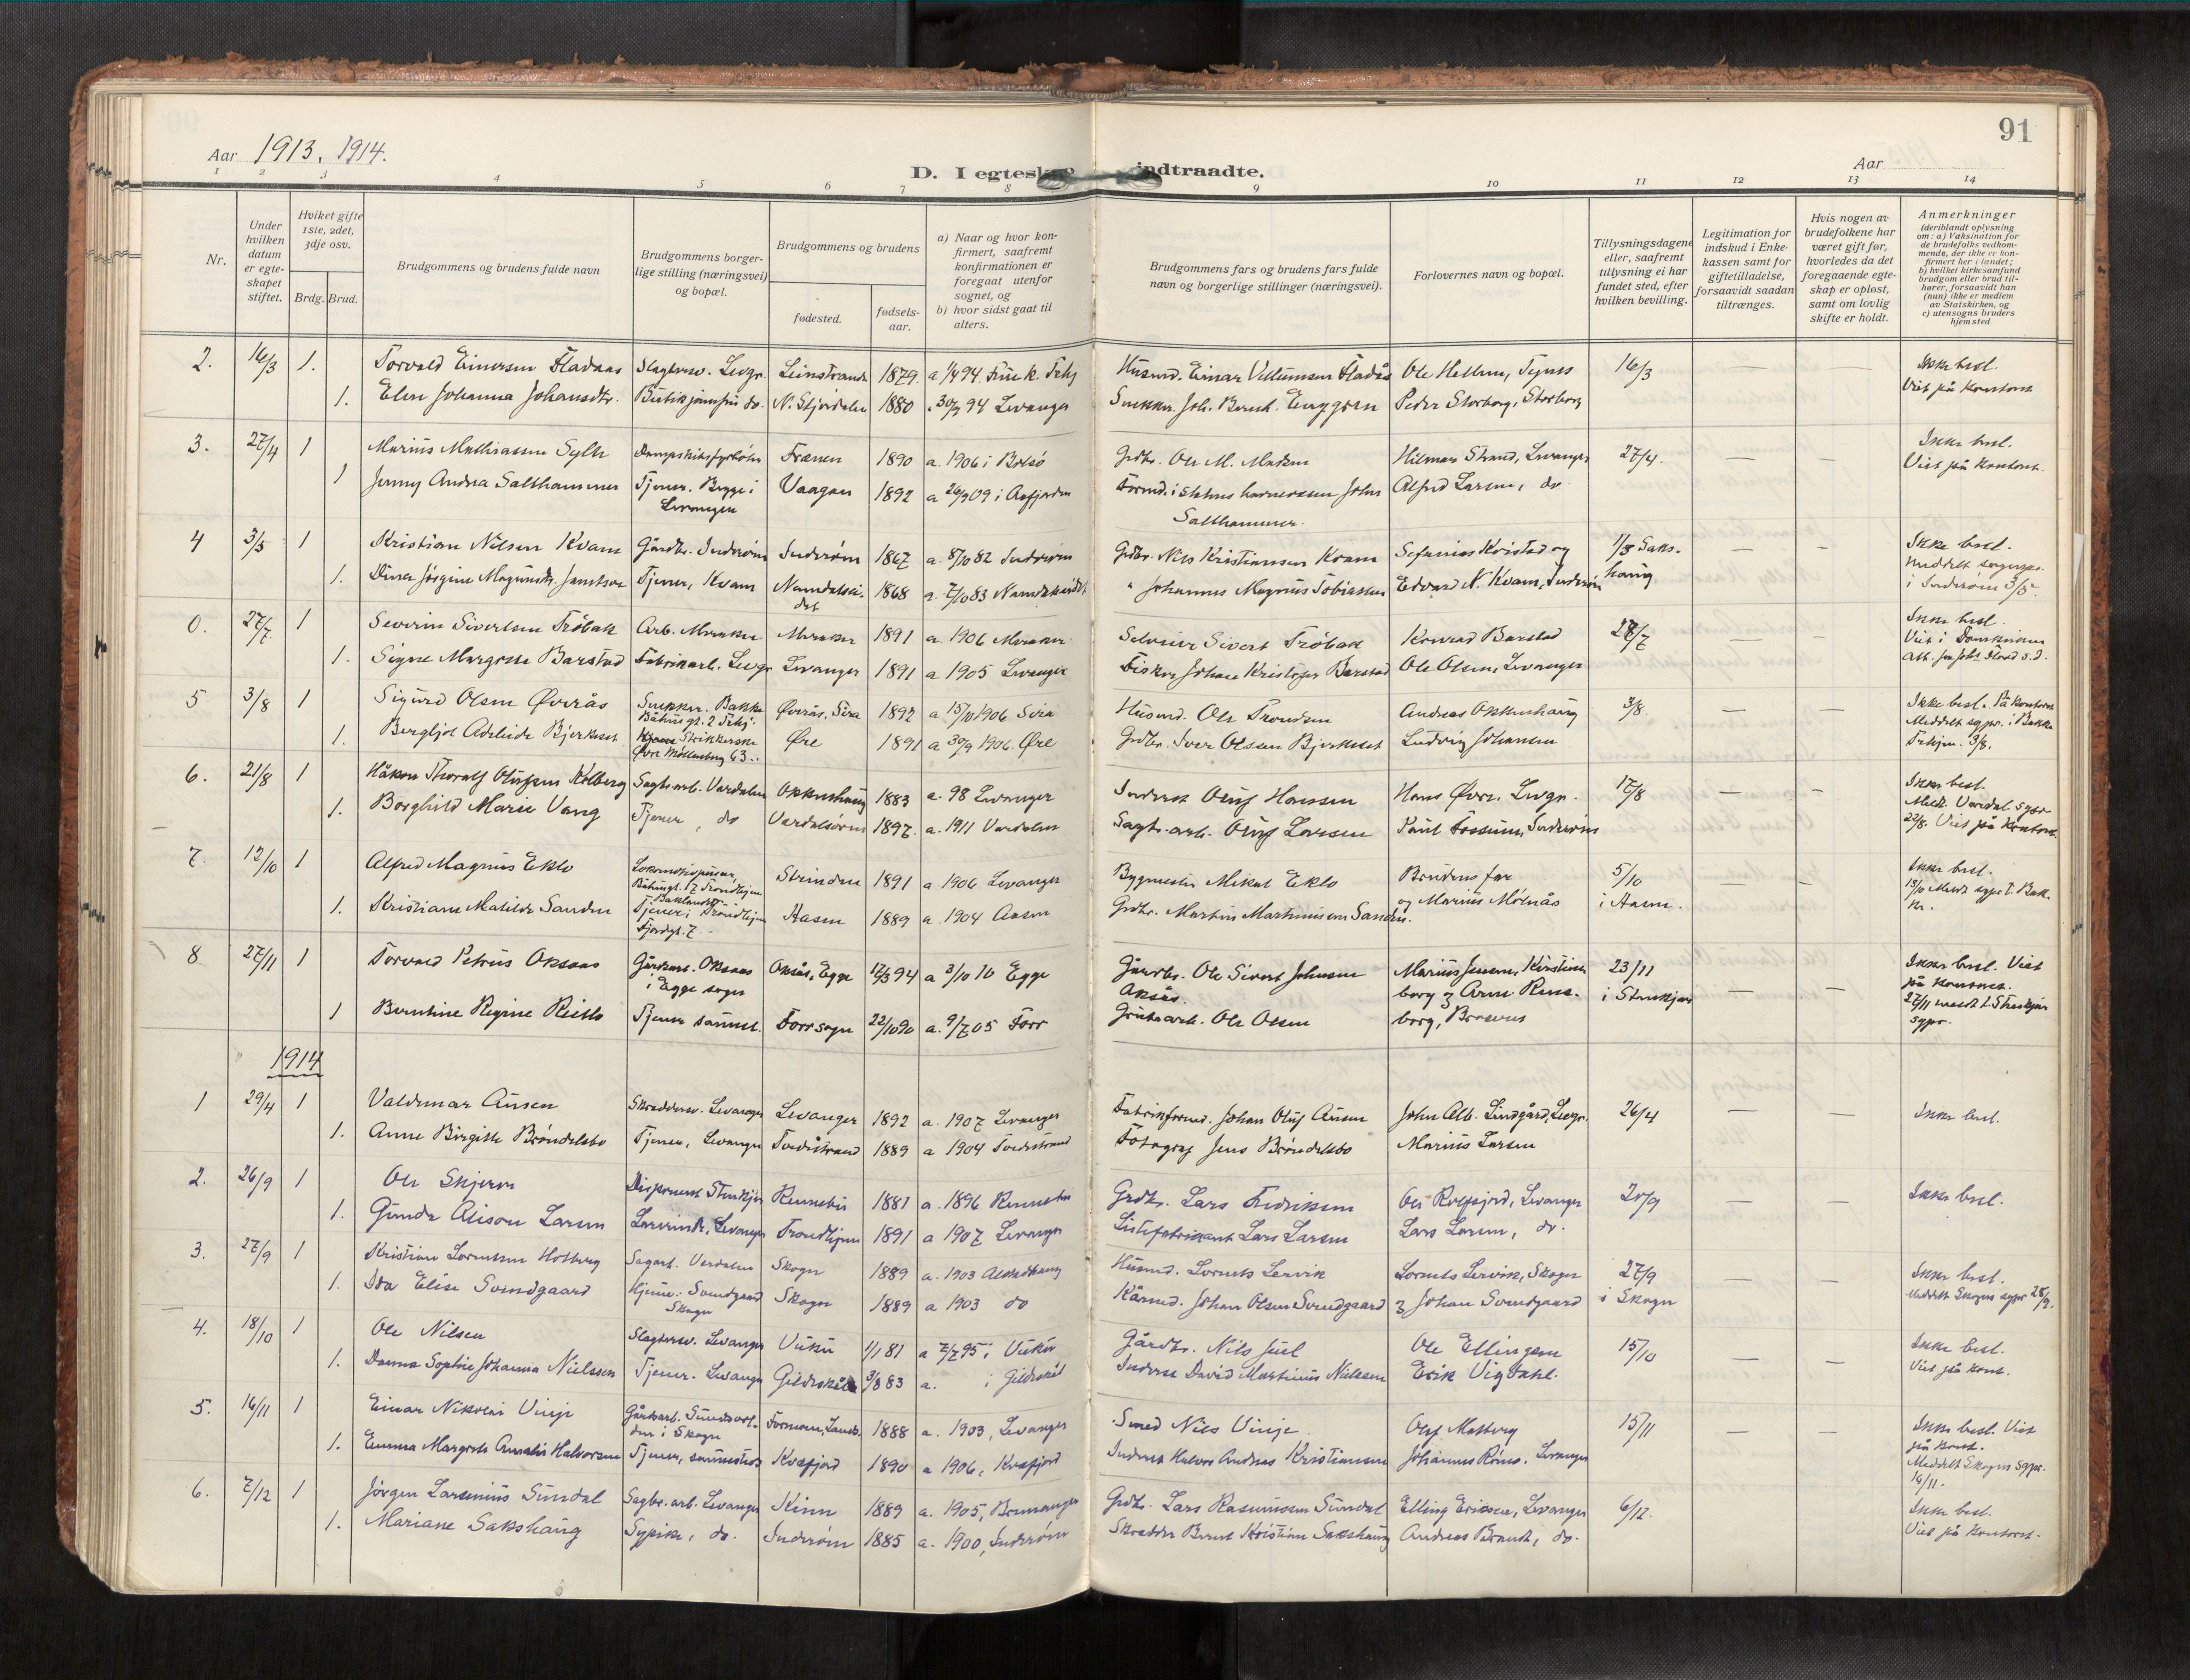 91
Aar 1913. 1914.
D. I egteskap indtraadte.
Aar
1 2 3 4 5 6 7 8 9 10 11 12 13 14
Nr.
Under hvilken datum er egteskapet stiftet.
Hviket gifte 1ste, 2det, 3dje osv.
Brdg. Brud.
Brudgommens og brudens fulde navn
Brudgommens borgerlige stilling (næringsvei) og bopæl.
Brudgommens og brudens
fødested.
fødselsaar.
a) Naar og hvor konfirmert, saafremt konfirmationen er foregaat utenfor sognet, og
b) hvor sidst gaat til alters.
Brudgommens fars og brudens fars fulde navn og borgerlige stillinger (næringsvei).
Forlovernes navn og bopæl.
Tillysningsdagene eller, saafremt tillysning ei har fundet sted, efter hvilken bevilling.
Legitimation for indskud i Enkekassen samt for giftetilladelse, forsaavidt saadan tiltrænges.
Hvis nogen av brudefolkene har været gift før, hvorledes da det foregaaende egteskap er opløst, samt om lovlig skifte er holdt.
Anmerkninger (deriblandt oplysning om: a) Vaksination for de brudefolks vedkommende, der ikke er konfirmert her i landet; b) hvilket kirkesamfund brudgom eller brud tilhører, forsaavidt han (hun) ikke er medlem av Statskirken, og c) utensogns bruders hjemsted
2. 16/3 1. Torvald Einersen Fladaas Slagtersv. Levgr. Leinstranda 1879. Ole Hellem, 16/3 Ikke besl.
1. Elen Johanna Johansdtr. do. N. Stjørdalen 1880 Levanger Peder Storborg, Storborg Viet på Kontoret
3. 27/4 1 Marius Mathiassen Sylte Frænen 1890 a. 1906 i Bolsø Grdbr. Ole M. Hilmar Strand, Levanger 27/4. Ikke besl.
1 Jenny Andrea Salthammer Tjener. Begge i Levanger Vaagan 1892 a. 26/9 09 i Aafjorden John Salthammer. Alfred Larsen, do Viet på Kontoret.
4 3/5 1 Kristian Nilsen Kvam Gårdbr. Inderøen Inderøen 1867 a. 8/10 82 Inderøen Grdbr. Nils Kristiansen Kvam Sefanias Kvistad og 1/5 Sakshaug Ikke besl.
1. Jørgine Magnusdtr. Tjener, Kvam Namdalseidet 1868 a. 7/10 83 Namdalseidet " Johannes Magnus Tobiassen Edvard N. Kvam, Inderøen Meddelt sognepr. i Inderøen 3/5.
0. 27/7 1 Severin Sivertsen Tröbak Arb. Meraker Meraker 1891 a. 1906 Meraker Selveier Sivert Tröbak Konrad Barstad 27/7 Ikke besl.
1. Signe Margrete Barstad Fabrikarb. Levgr Levanger 1891 a 1905 Levanger Fisker Johan Kristofer Barstad Ole Olsen, Levanger
5 3/8 1 Sigurd Olsen Øverås Snekker. Bakke Øverås, Sira 1892 a 15/10 1906 Sira Husmd. Ole Trondsen Andreas Okkenhaug 3/8. Ikke besl. På kontoret
1. Bergljot Adeleide Bjerkeset Strikkerske Øvre Møllenberg 63 Øre 1891 a 30/9 1906. Øre Grdbr. Iver Olsen Bjerkeset Ludvig Johansen Meddelt sgpr. i Bakke Trhjm. 3/8.
6. 21/8 1 Håkon Thoralf Olufsen Kolberg Sagbr.arb. Værdalen Okkenhaug 1883 a. 98 Levanger Inderst Oluf Hansen Hans Øvre, Levgr. 17/8 Ikke besl.
1. Borghild Marie Vang Tjener, do Værdalsøren 1892. a. 1911 Værdalen Sagbr.arb. Oluf Larsen Paul Fossum, Inderøen Værdal sgpr 22/8. Viet på Kontoret
7. 12/10 1 Alfred Magnus Eklo Strinden 1891 a 1906 Levanger Bygmester Mikal Eklo Brudens far 5/10 Ikke besl.
1. Kristiane Matilde Sanden Tjener, Trondhjem Fjordgt. 7 Aasen 1889 a. 1904 Aasen Grdbr. Martin Martinusen Sanden. og Marius Mölnås i Aasen.
8 27/11 1 Torvald Petrus Oksaas Gårdarb. Oksaas i Egge sogn Oksås, Egge 17/3 94 a 3/10 10 Egge Gårdbr. Ole Sivert Johnsen Oksås. 23/11 i Stenkjær Ikke besl. Viet på Kontoret.
1 Berntine Regine Reitlo Tjener samst. Forr sogn 22/10 90 a. 9/7 05 Forr Ole Olsen 27/11 meddt t. Stenkjær sgpr.
1914
1 29/4 1 Valdemar Ausen Skreddersv. Levanger Levanger 1892 a. 1907 Levanger Fabrikformd. Johan Oluf Ausen John Alb. Lindgård, Levgr. 26/4 Ikke besl.
1. Anne Birgitte Bröndelsbo Tjener, Levanger Tvedestrand 1889 a 1904 Tvedestrand Fotograf Jens Bröndelsbo Marius Larsen
2. 26/9 1 Ole Skjerve Disponent Stenkjær Rennebu 1881 a. 1896 Rennebu Grdbr. Lars Fredriksen Levanger 20/9 Ikke besl.
1. Gunda Alison Larsen Lærerinde, Levanger Trondhjem 1891 a 1907 Levanger Listefabrikant Lars Larsen Lars Larsen, do.
3. 27/9 1 Kristian Lorentsen Holberg Sagarb. Værdalen Skogn 1889 a. 1903 Husmd. Lorents Lervik Lorents Lervik, Skogn 27/9 Ikke besl.
1. Ida Elise Svendgaard Hjemme: Svendgaard Skogn Skogn 1889 a 1903 do Kårmd. Johan Olsen Svendgaard & Johan Svendgaard i Skogn Meddelt Skogns sgpr 28/9.
4. 18/10 1 Ole Nilsen Slagtersv. Levanger Vuku 1/1 81 a 7/7 95 i Vuku Gårdbr. Nils Juel Ole Ellingsen 15/10 Ikke besl.
1. Sophie Johanna Nielssen Tjener. Levanger Gildeskål 3/8 83 a. i Gildeskål Inderst David Martinus Nielsen Erik Vigdahl. Viet på Kont.
5. 16/11 1 Einar Nikolai Vinje 1888 a. 1903, Levanger Smed Nils Vinje 15/11 Ikke besl. Viet på Kont.
1. Emma Margrete Amalie Halvorsen Tjener, sammesteds Kvæfjord 1890 a 1906, Kvæfjord Inderst Halvor Andreas Kristiansen Johannes Levanger Meddelt Skogns sgpr. 16/11.
6. 7/12 1 Jørgen Larsenius Sundal Sagbr.arb. Levanger Kinn 1889 a. 1905, Bremanger Grdbr. Lars Rasmussen Sundal Elling Eriksen, Levanger 6/12. Ikke besl.
1. Mariane Sakshaug Sypike, do. Inderøen 1885 a. 1900, Inderøen Skredder Bernt Kristian Sakshaug Andreas Brandt, do. Viet på Kontoret.